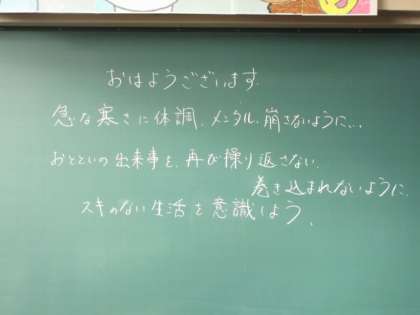 おはようございます.
急な寒さに体調、メンタル、崩さないように...
おとといの出来事を、再び繰り返さない.
巻き込まれないように.
スキのない生活を意識しよう.